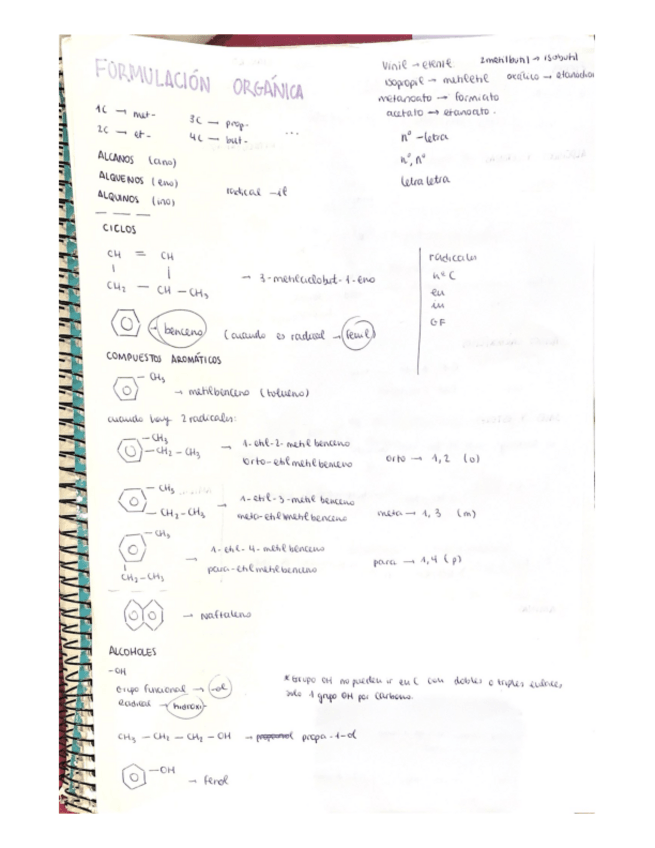 FORMULACIÓN ORGÁNICA
Vinil → etenil 2metilbutil → isobutil
isopropil → metiletil oxálico → etanodioi
metanoato → formiato
acetato → etanoato.
1C → met- 3C → prop-
2C → et- 4C → but- ...
nº - letra
nº, nº
letra letra
ALCANOS (ano)
ALQUENOS (eno)
ALQUINOS (ino)
radical -il
CICLOS
CH = CH
CH2 - CH - CH3
→ 3-metilciclobut-1-eno
radicales
nº C
en
in
GF
→ benceno (cuando es radical → fenil)
COMPUESTOS AROMÁTICOS
- CH3
→ metilbenceno (tolueno)
cuando hay 2 radicales:
- CH3
- CH2 - CH3
→ 1-etil-2-metilbenceno
orto-etilmetilbenceno
orto → 1,2 (o)
- CH3
- CH2 - CH3
→ 1-etil-3-metil benceno
meta-etilmetilbenceno
meta → 1,3 (m)
- CH3
CH2 - CH3
→ 1-etil-4-metilbenceno
para-etilmetilbenceno
para → 1,4 (p)
→ Naftaleno
ALCOHOLES
-OH
Grupo funcional → -ol
Radical → hidroxi-
* Grupo OH no pueden ir en C con dobles o triples enlaces,
solo 1 grupo OH por carbono.
CH3 - CH2 - CH2 - OH → propanol propa-1-ol
- OH
→ fenol